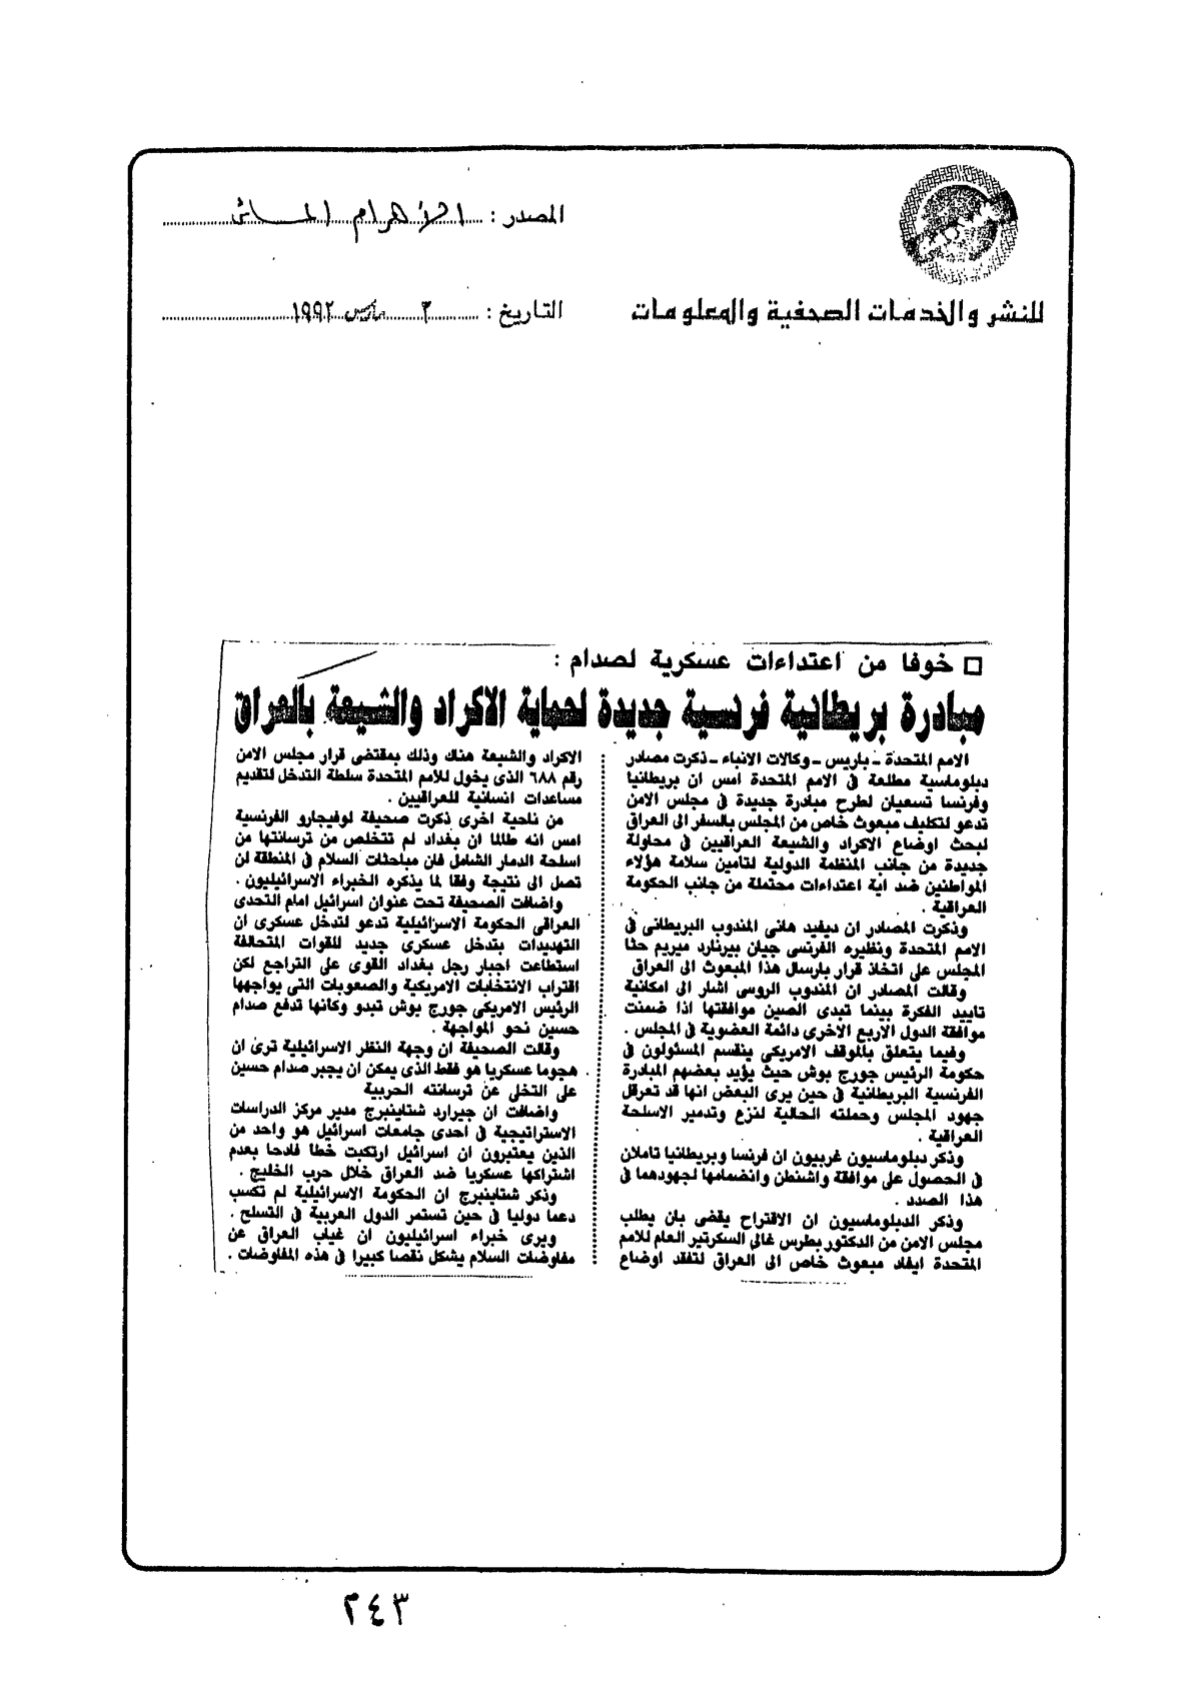 المصدر : الأهرام المسائى
للنشر والخدمات الصحفية والمعلومات
التاريخ : ٣ مارس ١٩٩٢
□ خوفا من اعتداءات عسكرية لصدام :
مبادرة بريطانية فرنسية جديدة لحماية الاكراد والشيعة بالعراق
الامم المتحدة ـ باريس ـ وكالات الانباء ـ ذكرت مصادر
دبلوماسية مطلعة فى الامم المتحدة امس ان بريطانيا
وفرنسا تسعيان لطرح مبادرة جديدة فى مجلس الامن
تدعو لتكليف مبعوث خاص من المجلس بالسفر الى العراق
لبحث اوضاع الاكراد والشيعة العراقيين فى محاولة
جديدة من جانب المنظمة الدولية لتامين سلامة هؤلاء
المواطنين ضد اية اعتداءات محتملة من جانب الحكومة
العراقية .
وذكرت المصادر ان ديفيد هانى المندوب البريطانى فى
الامم المتحدة ونظيره الفرنسى جيان بيرنارد ميريم حثا
المجلس على اتخاذ قرار بارسال هذا المبعوث الى العراق
وقالت المصادر ان المندوب الروسى اشار الى امكانية
تاييد الفكرة بينما تبدى الصين موافقتها اذا ضمنت
موافقة الدول الاربع الاخرى دائمة العضوية فى المجلس .
وفيما يتعلق بالموقف الامريكى ينقسم المسئولون فى
حكومة الرئيس جورج بوش حيث يؤيد بعضهم المبادرة
الفرنسية البريطانية فى حين يرى البعض انها قد تعرقل
جهود المجلس وحملته الحالية لنزع وتدمير الاسلحة
العراقية .
وذكر دبلوماسيون غربيون ان فرنسا وبريطانيا تاملان
فى الحصول على موافقة واشنطن وانضمامها لجهودهما فى
هذا الصدد .
وذكر الدبلوماسيون ان الاقتراح يقضى بان يطلب
مجلس الامن من الدكتور بطرس غالى السكرتير العام للامم
المتحدة ايفاد مبعوث خاص الى العراق لتفقد اوضاع
الاكراد والشيعة هناك وذلك بمقتضى قرار مجلس الامن
رقم ٦٨٨ الذى يخول للامم المتحدة سلطة التدخل لتقديم
مساعدات انسانية للعراقيين .
من ناحية اخرى ذكرت صحيفة لوفيجارو الفرنسية
امس انه طالما ان بغداد لم تتخلص من ترسانتها من
اسلحة الدمار الشامل فان مباحثات السلام فى المنطقة لن
تصل الى نتيجة وفقا لما يذكره الخبراء الاسرائيليون .
واضافت الصحيفة تحت عنوان اسرائيل امام التحدى
العراقى الحكومة الاسرائيلية تدعو لتدخل عسكرى ان
التهديدات بتدخل عسكرى جديد للقوات المتحالفة
استطاعت اجبار رجل بغداد القوى على التراجع لكن
اقتراب الانتخابات الامريكية والصعوبات التى يواجهها
الرئيس الامريكى جورج بوش تبدو وكانها تدفع صدام
حسين نحو المواجهة .
وقالت الصحيفة ان وجهة النظر الاسرائيلية ترى ان
هجوما عسكريا هو فقط الذى يمكن ان يجبر صدام حسين
على التخلى عن ترسانته الحربية
واضافت ان جيرارد شتاينبرج مدير مركز الدراسات
الاستراتيجية فى احدى جامعات اسرائيل هو واحد من
الذين يعتبرون ان اسرائيل ارتكبت خطا فادحا بعدم
اشتراكها عسكريا ضد العراق خلال حرب الخليج .
وذكر شتاينبرج ان الحكومة الاسرائيلية لم تكسب
دعما دوليا فى حين تستمر الدول العربية فى التسلح .
ويرى خبراء اسرائيليون ان غياب العراق عن
مفاوضات السلام يشكل نقصا كبيرا فى هذه المفاوضات .
٢٤٣